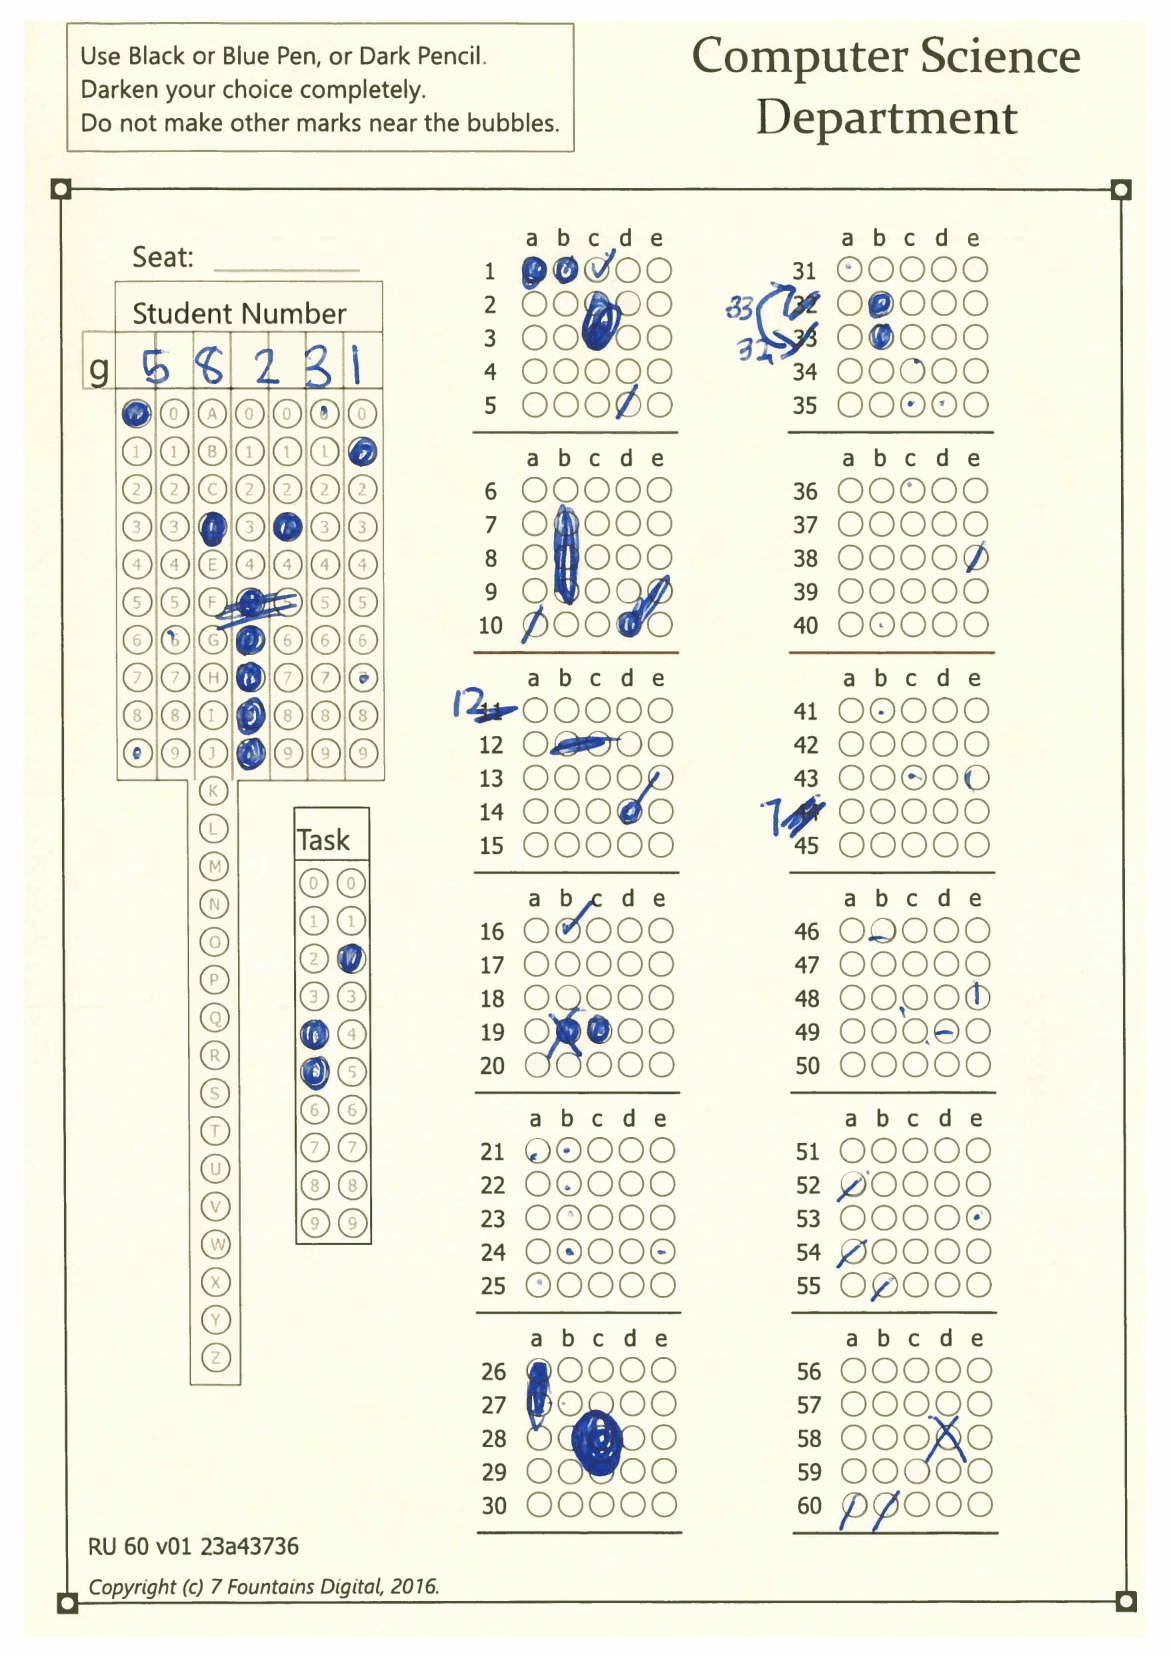 Use Black or Blue Pen, or Dark Pencil.
Darken your choice completely.
Do not make other marks near the bubbles.
Computer Science
Department
Seat:
Student Number
g 5 8 2 3 1
0 A 0 0 0 0
1 1 B 1 1 1
2 2 C 2 2 2 2
3 3 3 3 3
4 4 E 4 4 4 4
5 5 F 5 5 5
6 6 G 6 6 6
7 7 H 7 7 7
8 8 I 8 8 8
9 J 9 9 9
K
L
M
N
O
P
Q
R
S
T
U
V
W
X
Y
Z
Task
0 0
1 1
2
3 3
4
5
6 6
7 7
8 8
9 9
a b c d e
1
2
3
4
5
a b c d e
6
7
8
9
10
a b c d e
12 11
12
13
14
15
a b c d e
16
17
18
19
20
a b c d e
21
22
23
24
25
a b c d e
26
27
28
29
30
a b c d e
31
33 32
32 33
34
35
a b c d e
36
37
38
39
40
a b c d e
41
42
43
7 44
45
a b c d e
46
47
48
49
50
a b c d e
51
52
53
54
55
a b c d e
56
57
58
59
60
RU 60 v01 23a43736
Copyright (c) 7 Fountains Digital, 2016.